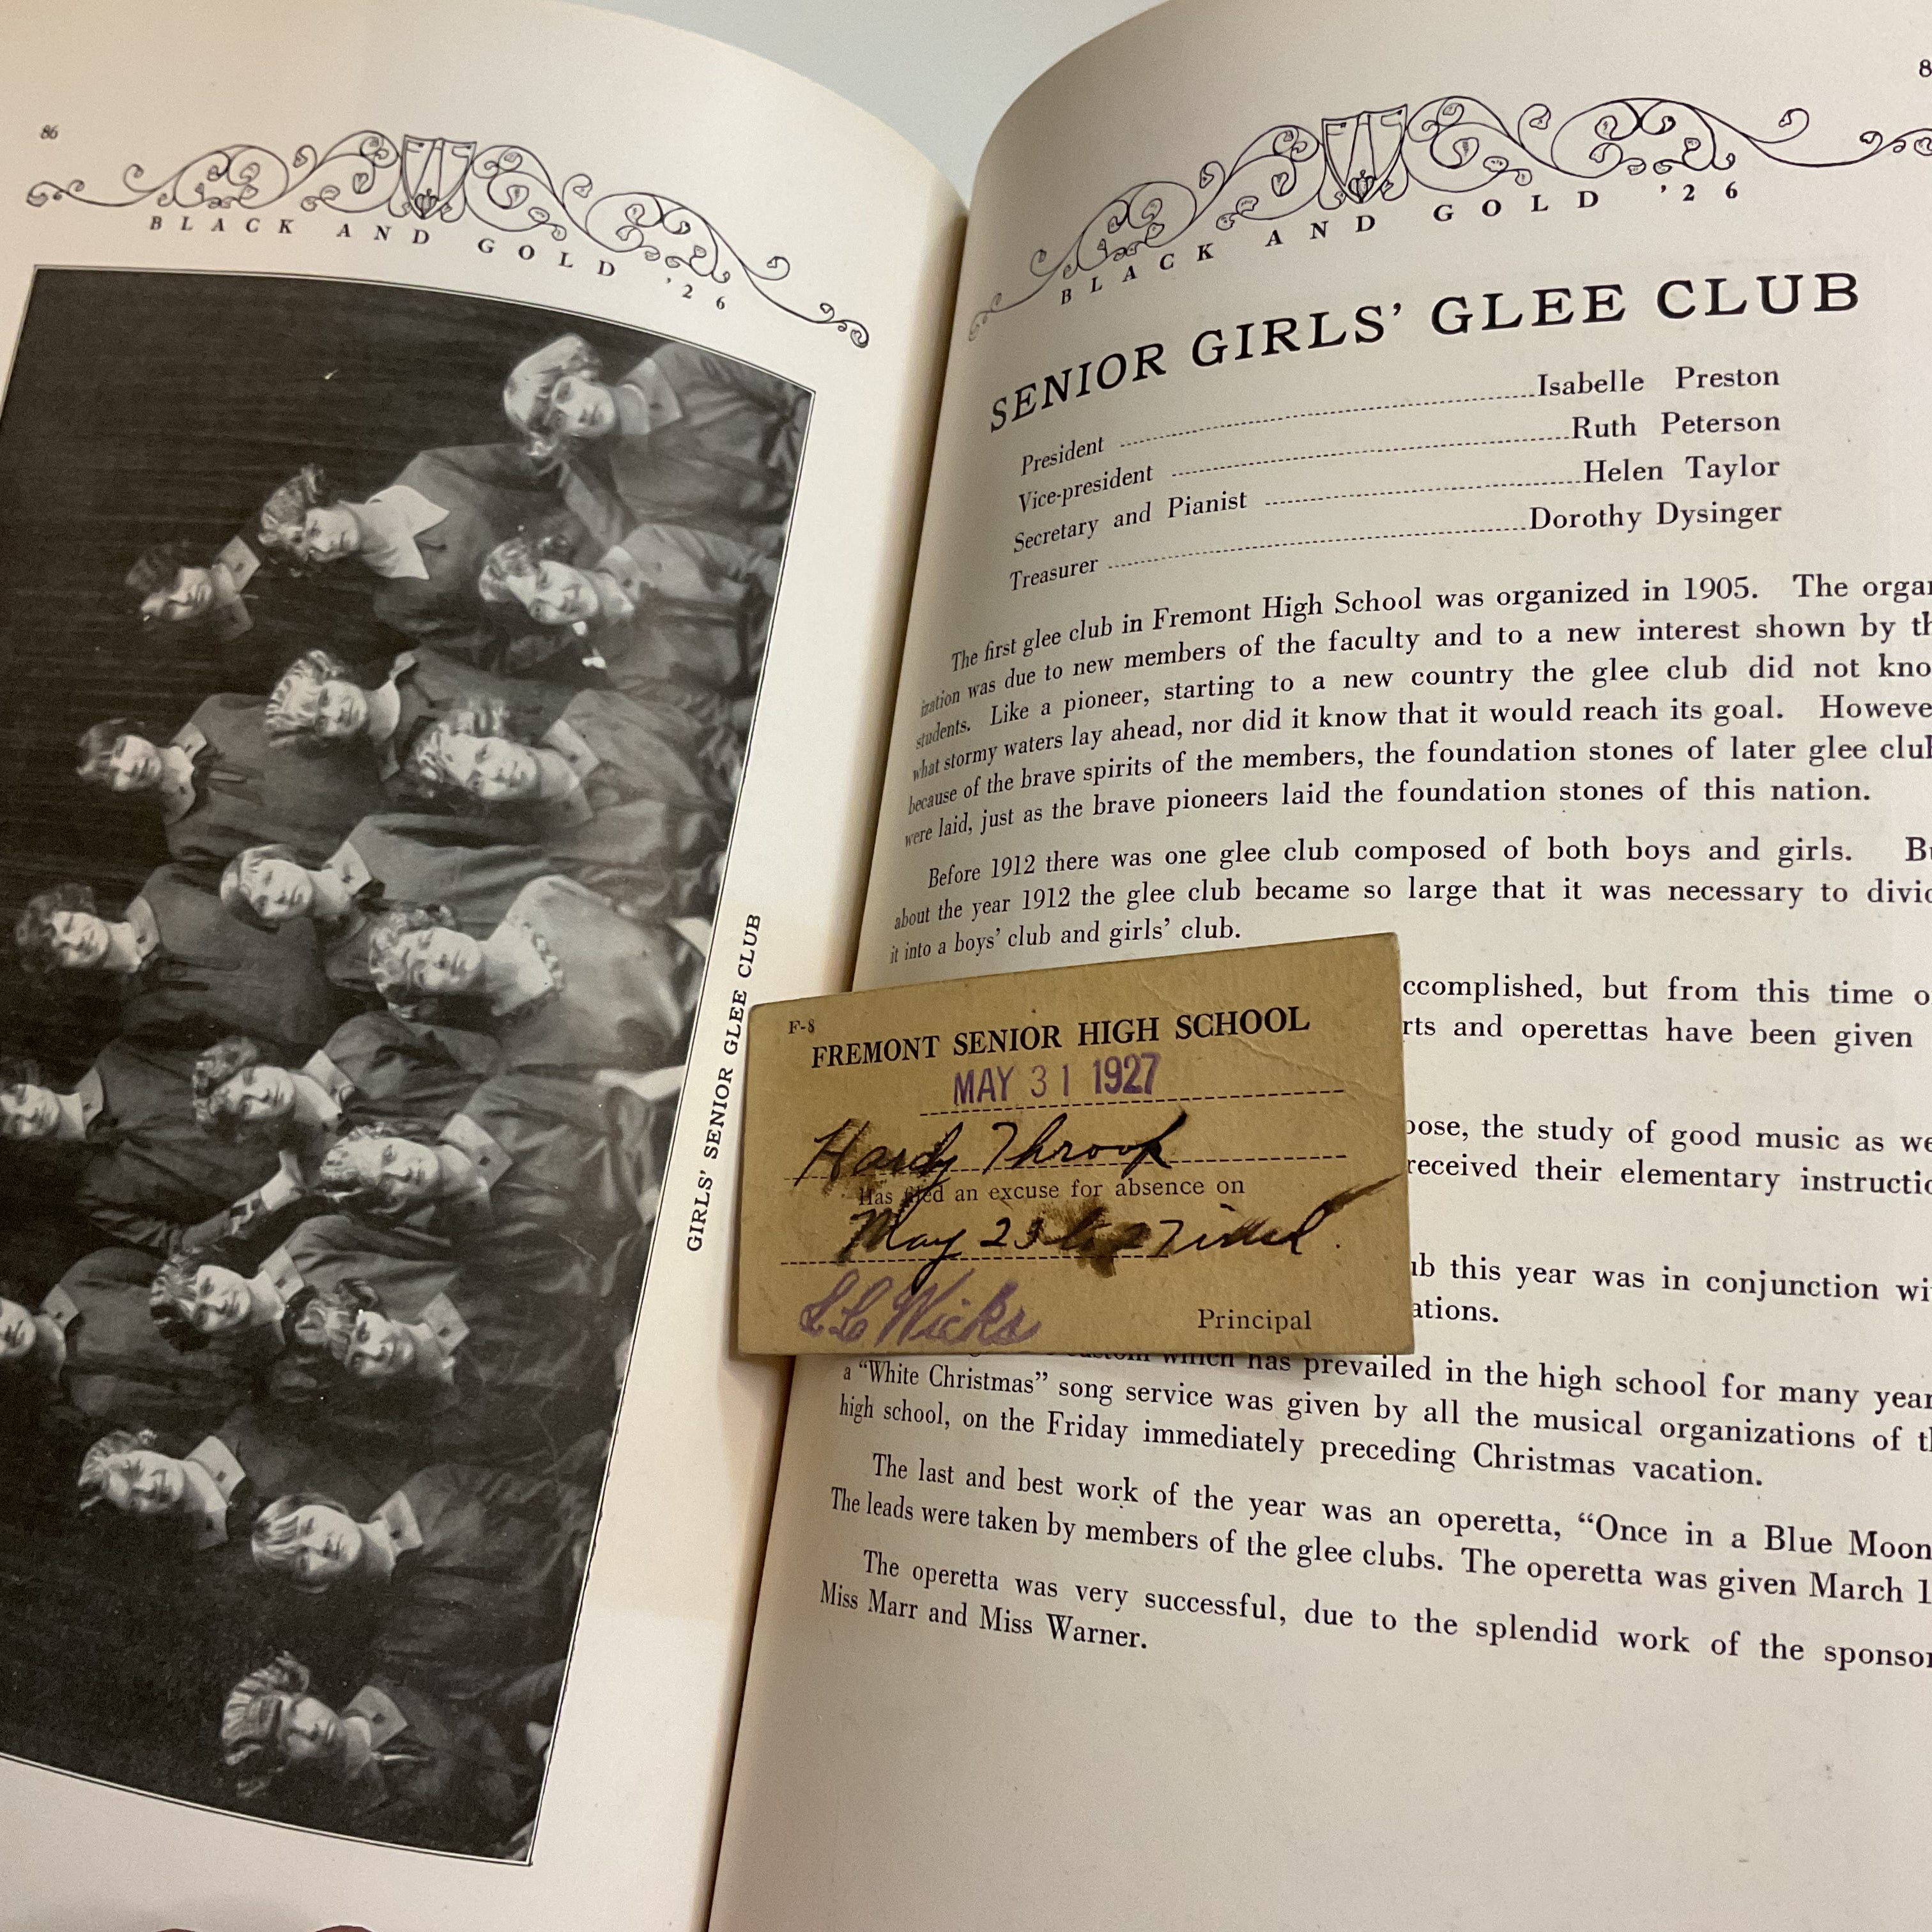 86
BLACK AND GOLD '26
GIRLS' SENIOR GLEE CLUB
8
BLACK AND GOLD '26
SENIOR GIRLS' GLEE CLUB
President Isabelle Preston
Vice-president Ruth Peterson
Secretary and Pianist Helen Taylor
Treasurer Dorothy Dysinger
The first glee club in Fremont High School was organized in 1905. The organ
ization was due to new members of the faculty and to a new interest shown by th
students. Like a pioneer, starting to a new country the glee club did not kno
what stormy waters lay ahead, nor did it know that it would reach its goal. Howeve
because of the brave spirits of the members, the foundation stones of later glee clu
were laid, just as the brave pioneers laid the foundation stones of this nation.
Before 1912 there was one glee club composed of both boys and girls. Bu
about the year 1912 the glee club became so large that it was necessary to divid
it into a boys' club and girls' club.
ccomplished, but from this time o
rts and operettas have been given
pose, the study of good music as we
received their elementary instructio
ub this year was in conjunction wi
ations.
custom which has prevailed in the high school for many year
a "White Christmas" song service was given by all the musical organizations of th
high school, on the Friday immediately preceding Christmas vacation.
The last and best work of the year was an operetta, "Once in a Blue Moon
The leads were taken by members of the glee clubs. The operetta was given March 1
The operetta was very successful, due to the splendid work of the sponsor
Miss Marr and Miss Warner.
F-8
FREMONT SENIOR HIGH SCHOOL
MAY 31 1927
Hardy Throop
Has filed an excuse for absence on
May 23 to 27
L C Wicks
Principal